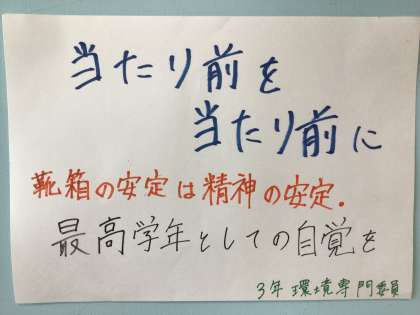 当たり前を
当たり前に
靴箱の安定は精神の安定.
最高学年としての自覚を
3年 環境専門委員